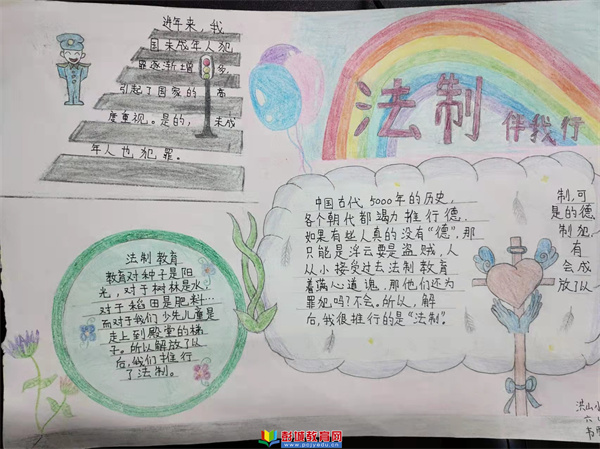 进年来，我
国未成年人犯
罪逐渐增 多，
引起了国家的 高
度重视。是的， 未成
年人也 犯罪。
法制 伴我行
法制 教育
教育对种子是阳
光，对于树林是水，
对于稻田是肥料…
而对于我们少先儿童是
走上到殿堂的梯
子。所以解放了以
后，我们推行
了法制。
中国古代，5000年的历史，
各个朝代都竭力推行德，
如果有些人真的没有“德”，那
只能是浮云要是盗贼，人
从小接受过去法制教育
着满心道 诡，那他们还为
罪犯吗？不会。所以，解
后，我很推行的是“法制”。
制，可
是的德
制犯，
有
会成
放了以
洪山小
六
彭城教育网
www.pcjyedu.cn